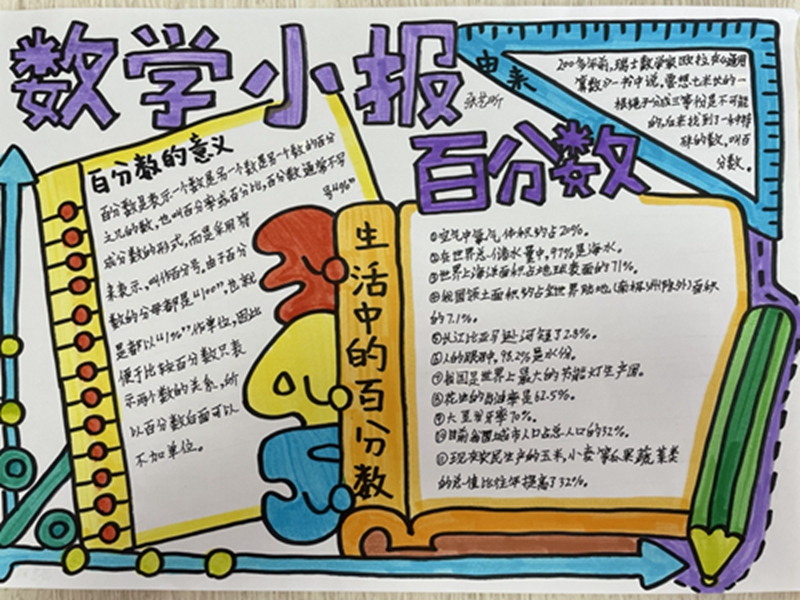 数学小报
由来
200多年前,瑞士数学家欧拉在《通用
算数》一书中说,要想七米长的一
根绳子分成三等份是不可能
的,后来找到了一种特
殊的数,叫百
分数。
百分数
百分数的意义
百分数是表示一个数是另一个数的百分
之几的数,也叫百分率或百分比,百分数通常不写
号“%”
成分数的形式,而是采用符
来表示,叫作百分号。由于百分
数的分母都是“100”,也就
是都以“1%”作单位,因此
便于比较百分数只表
示两个数的关系,所
以百分数后面可以
不加单位。
生活中的百分数
①空气中氧气体积约占20%。
②在世界总储水量中,97%是海水。
③世界上海洋面积占地球表面的71%。
④我国领土面积约占全世界陆地(南极洲除外)面积
的7.1%。
⑤长江比亚马逊河短了2.8%。
⑥人的眼中,98.2%是水份。
⑦我国是世界上最大的节能灯生产国。
⑧花生的出油率是62.5%。
⑨大豆发芽率70%。
⑩目前我国城市人口占总人口的32%。
⑪现在农民生产的玉米,小麦等瓜果蔬菜类
的总值比往年提高了32%。